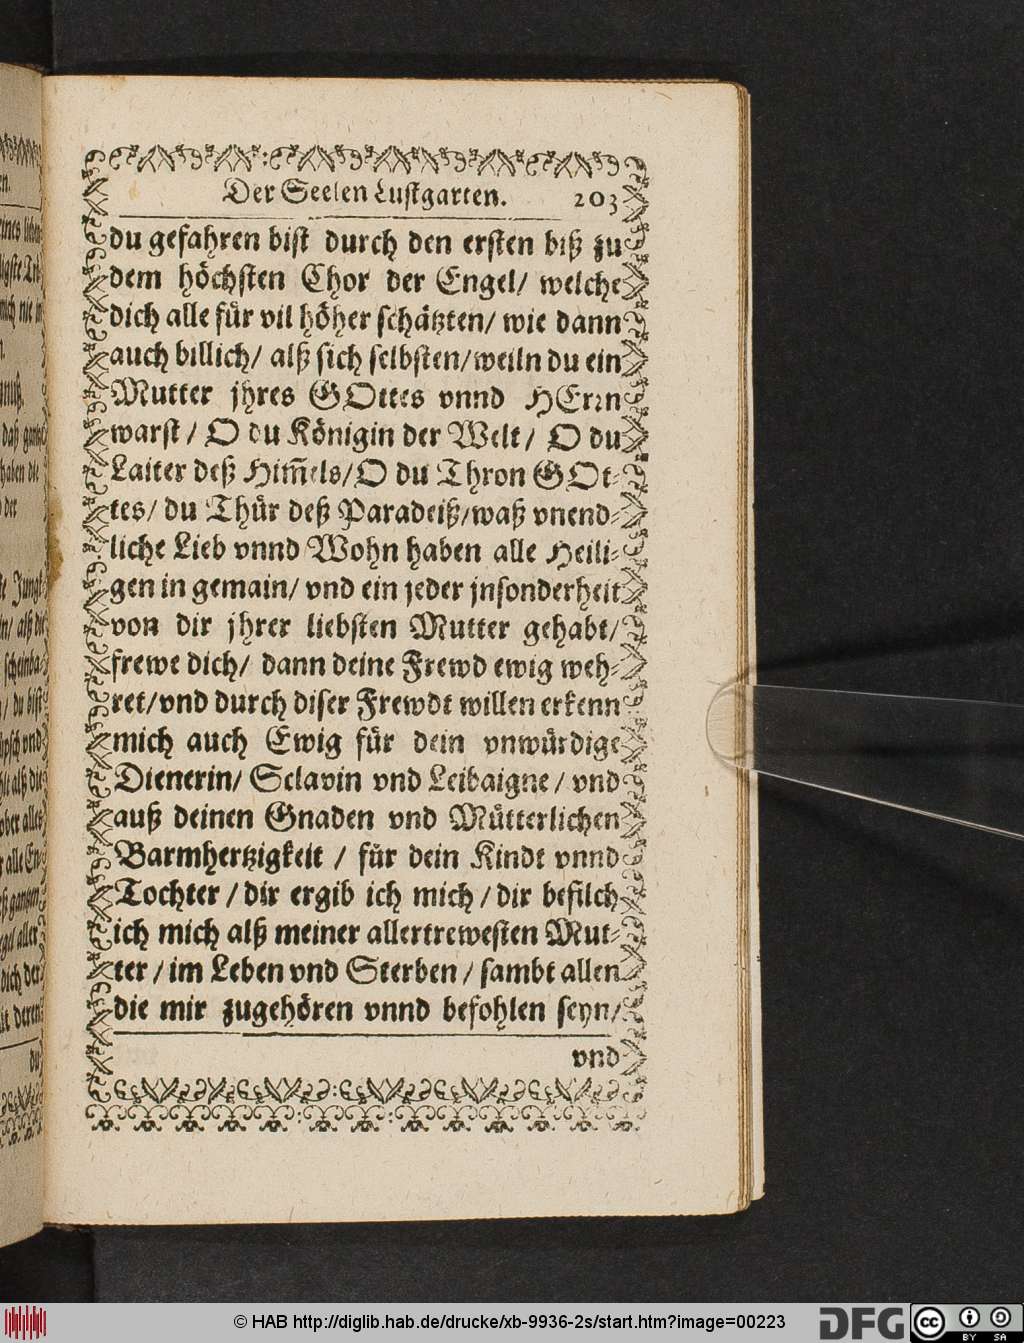 Der Seelen Lustgarten. 203
du gefahren bist durch den ersten biß zu
dem höchsten Chor der Engel/ welche
dich alle für vil höher schätzten/ wie dann
auch billich/ alß sich selbsten/weiln du ein
Mutter jhres GOttes vnnd HErrn
warst / O du Königin der Welt / O du
Laiter deß Him̃els/O du Thron GOt-
tes/ du Thür deß Paradeiß/waß vnend-
liche Lieb vnnd Wohn haben alle Heili-
gen in gemain/ vnd ein jeder jnsonderheit
von dir jhrer liebsten Mutter gehabt/
frewe dich/ dann deine Frewd ewig weh-
ret/vnd durch diser Frewdt willen erkenn
mich auch Ewig für dein vnwürdige
Dienerin/ Sclavin vnd Leibaigne / vnd
auß deinen Gnaden vnd Mütterlichen
Barmhertzigkeit / für dein Kindt vnnd
Tochter / dir ergib ich mich / dir befilch
ich mich alß meiner allertrewesten Mut-
ter / im Leben vnd Sterben / sambt allen
die mir zugehören vnnd befohlen seyn/
vnd
© HAB http://diglib.hab.de/drucke/xb-9936-2s/start.htm?image=00223
DFG
cc BY SA